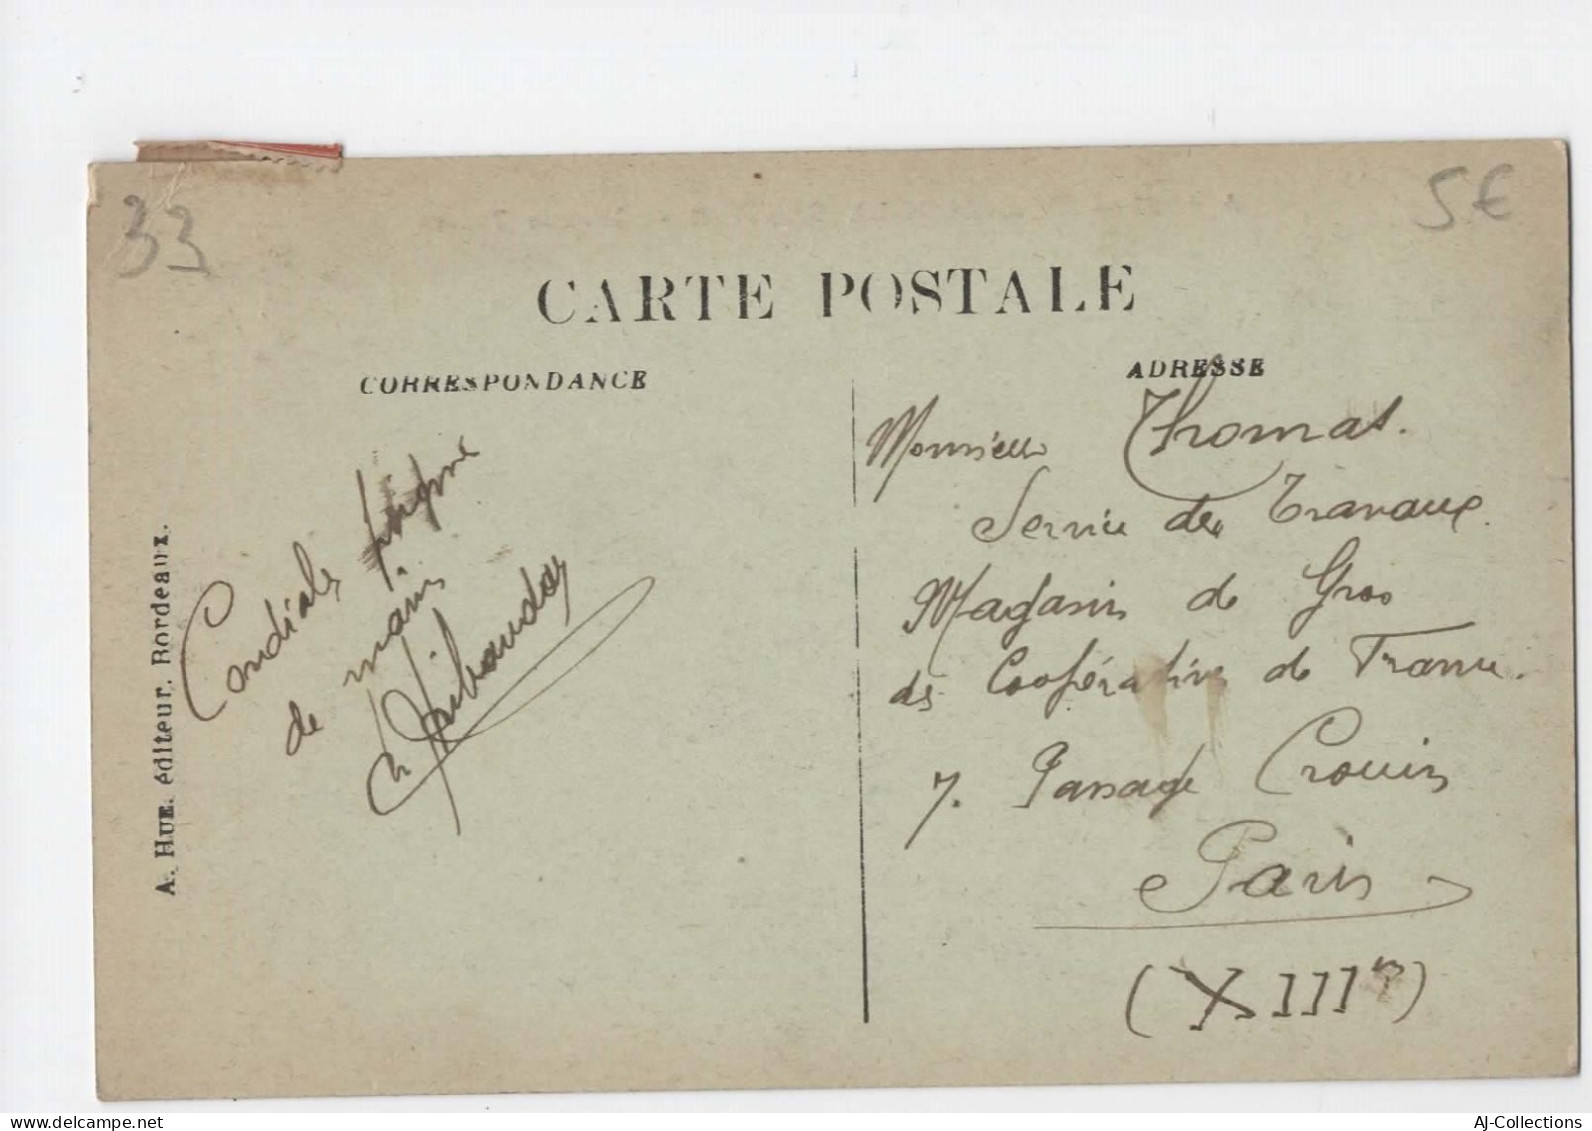 33
5€
CARTE POSTALE
CORRESPONDANCE
ADRESSE
Cordiale poignée
de main
Monsieur Thomas.
Service des Travaux
Magasin de Gros
des Coopérative de France.
7. Passage Crouin
Paris
(XIIIe)
A. HUE. éditeur. Bordeaux.
www.delcampe.net
AJ-Collections